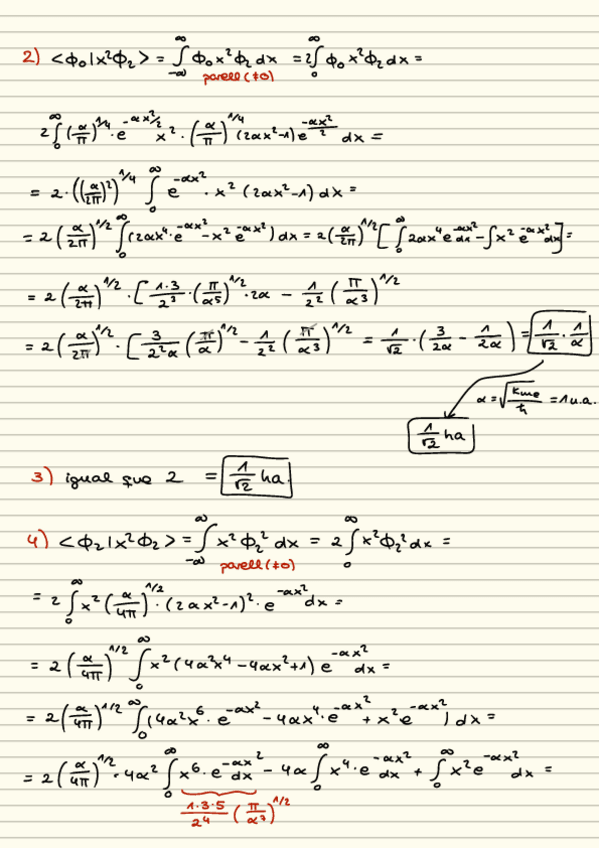 2) <ϕ₀|x²ϕ₂> = ∫_{-∞}^{∞} ϕ₀x²ϕ₂ dx = 2∫_0^∞ ϕ₀x²ϕ₂ dx =
parell (≠0)
2∫_0^∞ (α/π)^{1/4} · e^{-αx²/2} x² · (α/π)^{1/4} (2αx²-1) e^{-αx²/2} dx =
= 2 · ((α/2π)²)^{1/4} ∫_0^∞ e^{-αx²} · x² (2αx²-1) dx =
= 2 (α/2π)^{1/2} ∫_0^∞ (2αx⁴·e^{-αx²} - x² e^{-αx²}) dx = 2(α/2π)^{1/2} [∫_0^∞ 2αx⁴ e^{-αx²} dx - ∫x² e^{-αx²} dx] =
= 2 (α/2π)^{1/2} · [1·3/2³ (π/α⁵)^{1/2} · 2α - 1/2² (π/α³)^{1/2}
= 2 (α/2π)^{1/2} · [3/2²α (π/α)^{1/2} - 1/2² (π/α³)^{1/2} = 1/√2 · (3/2α - 1/2α) = 1/√2 · 1/α
α = √(kme)/ħ = 1 u.a.
1/√2 ha
3) igual que 2 = 1/√2 ha.
4) <ϕ₂|x²ϕ₂> = ∫_{-∞}^{∞} x²ϕ₂² dx = 2 ∫_0^∞ x²ϕ₂² dx =
parell (≠0)
= 2 ∫_0^∞ x² (α/4π)^{1/2} · (2αx²-1)² · e^{-αx²} dx =
= 2 (α/4π)^{1/2} ∫_0^∞ x² (4α²x⁴ - 4αx² + 1) e^{-αx²} dx =
= 2 (α/4π)^{1/2} ∫_0^∞ (4α²x⁶ · e^{-αx²} - 4αx⁴ · e^{-αx²} + x² e^{-αx²}) dx =
= 2 (α/4π)^{1/2} · 4α² ∫_0^∞ x⁶ · e^{-αx²} dx - 4α ∫_0^∞ x⁴ · e^{-αx²} dx + ∫_0^∞ x² e^{-αx²} dx =
1·3·5/2⁴ (π/α⁷)^{1/2}